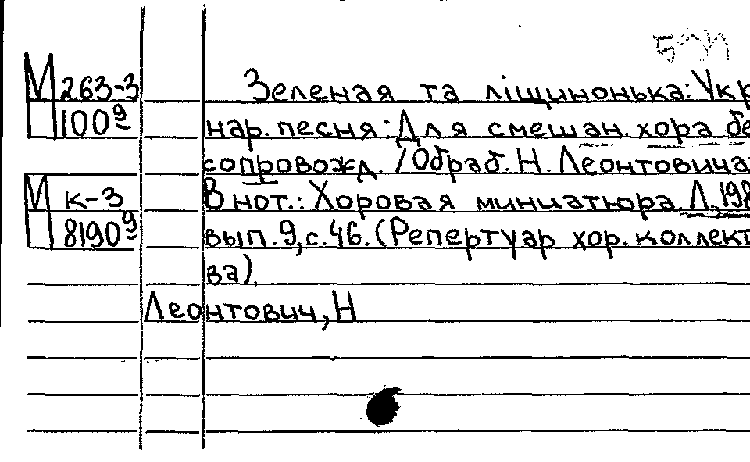 М 263-3 Зеленая та ліщинонька: Укр
100⁹ нар. песня: Для смешан. хора бе
сопровожд. / Обраб. Н. Леонтовича
М к-3 В нот.: Хоровая миниатюра. Л., 198
8190⁹ вып. 9, с. 46. (Репертуар хор. коллект
ва)
Леонтович, Н